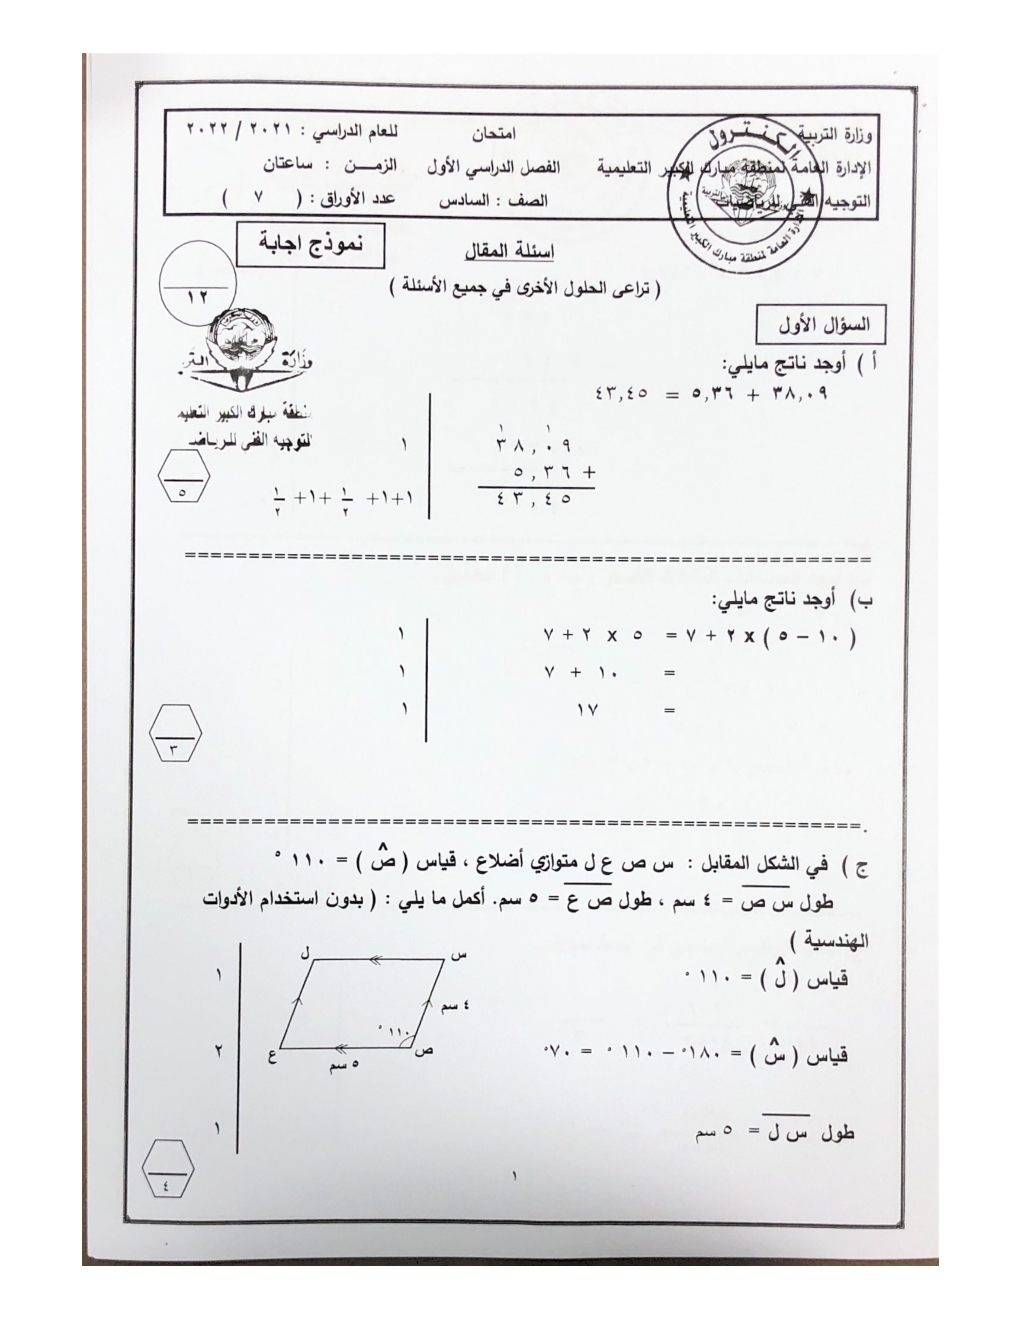 وزارة التربية امتحان للعام الدراسي : ٢٠٢١ / ٢٠٢٢
الإدارة العامة لمنطقة مبارك الكبير التعليمية الفصل الدراسي الأول الزمـــن : ساعتان
التوجيه الفني للرياضيات الصف : السادس عدد الأوراق : ( ٧ )
الكنترول
الإدارة العامة لمنطقة مبارك الكبير التعليمية
نموذج اجابة
اسئلة المقال
١٢
( تراعى الحلول الأخرى في جميع الأسئلة )
السؤال الأول
وزارة التر
منطقة مبارك الكبير التعليم
لتوجيه الفنى للرياضـ
أ ) أوجد ناتج مايلي:
٣٨,٠٩ + ٥,٣٦ = ٤٣,٤٥
١ ١
٣٨,٠٩ ١
٥,٣٦ +
٤٣,٤٥ ١+١+ ١/٢ +١+ ١/٢
٥
====================================================
ب) أوجد ناتج مايلي:
( ١٠ − ٥ ) x ٢ + ٧ = ٥ x ٢ + ٧ ١
= ١٠ + ٧ ١
= ١٧ ١
٣
.====================================================
ج ) في الشكل المقابل : س ص ع ل متوازي أضلاع ، قياس ( ص^ ) = ١١٠ °
طول س ص = ٤ سم ، طول ص ع = ٥ سم. أكمل ما يلي : ( بدون استخدام الأدوات
الهندسية )
قياس ( ل^ ) = ١١٠ ° ١
ل س
٤ سم
١١٠ °
ع ص
٥ سم
قياس ( س^ ) = ١٨٠° − ١١٠ ° = ٧٠° ٢
طول س ل = ٥ سم ١
٤
١